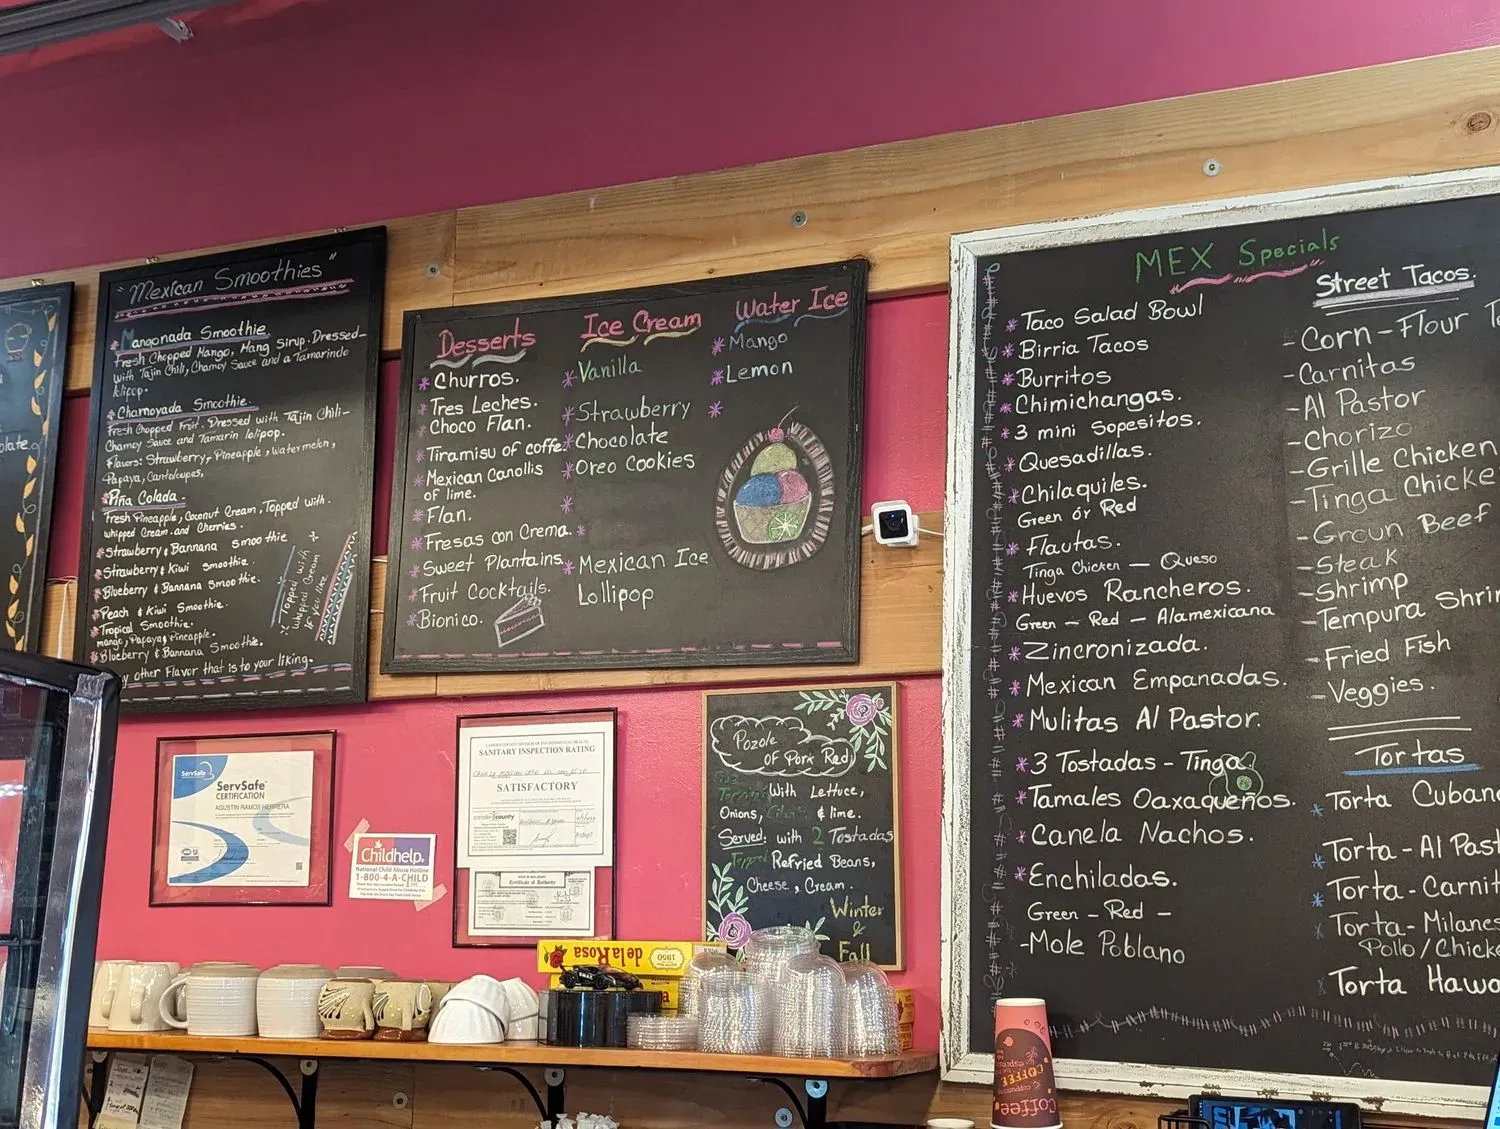 olate.
"Mexican Smoothies"
Mangonada Smoothie
Fresh Chopped Mango, Mang Sirup. Dressed-
with Tajin Chili, Chamoy Sauce and a Tamarindo
lolipop.
Chamoyada Smoothie.
Fresh Chopped Fruit. Dressed with Tajin Chili-
Chamoy Sauce and Tamarin lolipop.
Flavors: Strawberry, Pineapple, Watermelon,
Papaya, Cantaloupes,
Piña Colada.
Fresh Pineapple, Coconut Cream, Topped with.
whipped Cream. and Cherries.
*Strawberry & Bannana Smoothie
*Strawberry & Kiwi Smoothie.
*Blueberry & Bannana Smoothie.
*Peach & Kiwi Smoothie.
*Tropical Smoothie.
mango, Papaya, Pineapple.
*Blueberry & Bannana Smoothie.
y other Flavor that is to your liking.
Topped with
Whipped Cream
If you like
Desserts
*Churros.
*Tres Leches.
*Choco Flan.
*Tiramisu of coffe.
*Mexican Canollis
of lime.
*Flan.
*Fresas con Crema.
*Sweet Plantains.
*Fruit Cocktails.
*Bionico.
Ice Cream
*Vanilla
*Strawberry
*Chocolate
*Oreo Cookies
*
*
*Mexican Ice
Lollipop
Water Ice
*Mango
*Lemon
*
MEX Specials
*Taco Salad Bowl
*Birria Tacos
*Burritos
*Chimichangas.
*3 mini Sopesitos.
*Quesadillas.
*Chilaquiles.
Green or Red
*Flautas.
Tinga Chicken - Queso
*Huevos Rancheros.
Green - Red - Alamexicana
*Zincronizada.
*Mexican Empanadas.
*Mulitas Al Pastor.
*3 Tostadas - Tinga
*Tamales Oaxaqueños.
*Canela Nachos.
*Enchiladas.
Green - Red -
-Mole Poblano
Street Tacos.
-Corn-Flour T
-Carnitas
-Al Pastor
-Chorizo
-Grille Chicken
-Tinga Chicke
-Groun Beef
-Steak
-Shrimp
-Tempura Shri
-Fried Fish
-Veggies.
Tortas
*Torta Cuban
*Torta-Al Past
*Torta-Carnit
Torta-Milanes
Pollo/Chick
Torta Hawa
ServSafe
ServSafe
CERTIFICATION
AGUSTIN RAMOS HERRERA
Childhelp
National Child Abuse Hotline
1-800-4-A-CHILD
SANITARY INSPECTION RATING
SATISFACTORY
camden county
Certificate of Authority
Pozole
of Pork Red
With Lettuce,
Onions, & lime.
Served: with 2 Tostadas
Refried Beans,
Cheese, Cream.
Winter
&
Fall
de la Rosa
1950
COFFEE
Coffee